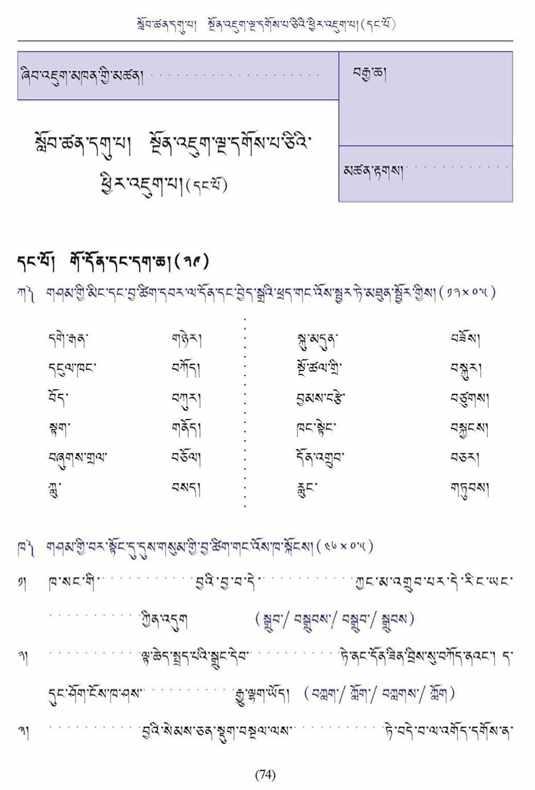 སློབ་ཚན་དགུ་པ།   སྔོན་འཇུག་ལྔ་དགོས་པ་ཅིའི་ཕྱིར་འཇུག་པ།(དང་པོ)
ཞིབ་འཇུག་མཁན་གྱི་མཚན། ....................
བརྒྱ་ཆ།
སློབ་ཚན་དགུ་པ།   སྔོན་འཇུག་ལྔ་དགོས་པ་ཅིའི་
ཕྱིར་འཇུག་པ།(དང་པོ)
མཚན་རྟགས། ............
དང་པོ།   གོ་དོན་དང་དག་ཆ།(༢༩)
ཀ༽   གཤམ་གྱི་མིང་དང་བྱ་ཚིག་དབར་ལ་དོན་དང་བྱེད་སྒྲའི་ཕྲད་གང་འོས་སྦྱར་ཏེ་མཐུན་སྦྱོར་གྱིས། (༡༢×༠་༥)
དགེ་རྒན་   གཉེར།   སྐུ་མདུན་   བཟོས།
དངུལ་ཁང་   བཀོད།   སྤོ་ཚལ་གྲི་   བསྐུར།
བོད་   བཀུར།   བྱམས་བརྩེ་   བཙུགས།
སྟག་   གནོད།   ཁང་སྟེང་   བསྐྱངས།
བཞུགས་གྲལ་   བཅོལ།   དོན་འགྲུབ་   བཅར།
ཀླུ་   བསད།   རླུང་   གཏུབས།
ཁ༽   གཤམ་གྱི་བར་སྟོང་དུ་དུས་གསུམ་གྱི་བྱ་ཚིག་གང་འོས་ཁ་སྐོངས། (༤༦×༠་༥)
༡།   ཁ་སང་གི་...........བྱའི་བྱ་བ་དེ་...........ཀྱང་མ་འགྲུབ་པར་དེ་རིང་ཡང་
...........ཀྱིན་འདུག   (སྒྲུབ་/ བསྒྲུབས་/ བསྒྲུབ་/ སྒྲུབས)
༢།   ...........ལྟ་ཆེད་སྤྲད་པའི་སྒྲུང་དེབ་...........ཏེ་ནང་དོན་ཟིན་བྲིས་སུ་བཀོད་ནའང་། ད་
དུང་ཤོག་ངོས་ཁ་ཤས་...........རྒྱུ་ལྷག་ཡོད།   (བཀླག་/ ཀློག་/ བཀླགས་/ ཀློག)
༣།   ...........བྱའི་སེམས་ཅན་སྡུག་བསྔལ་ལས་...........ཏེ་བདེ་བ་ལ་འགོད་དགོས་ན་
(74)